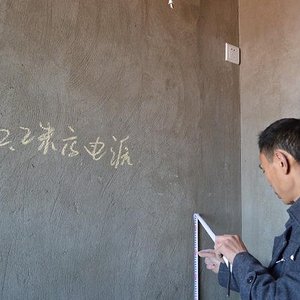 2.2米高电源